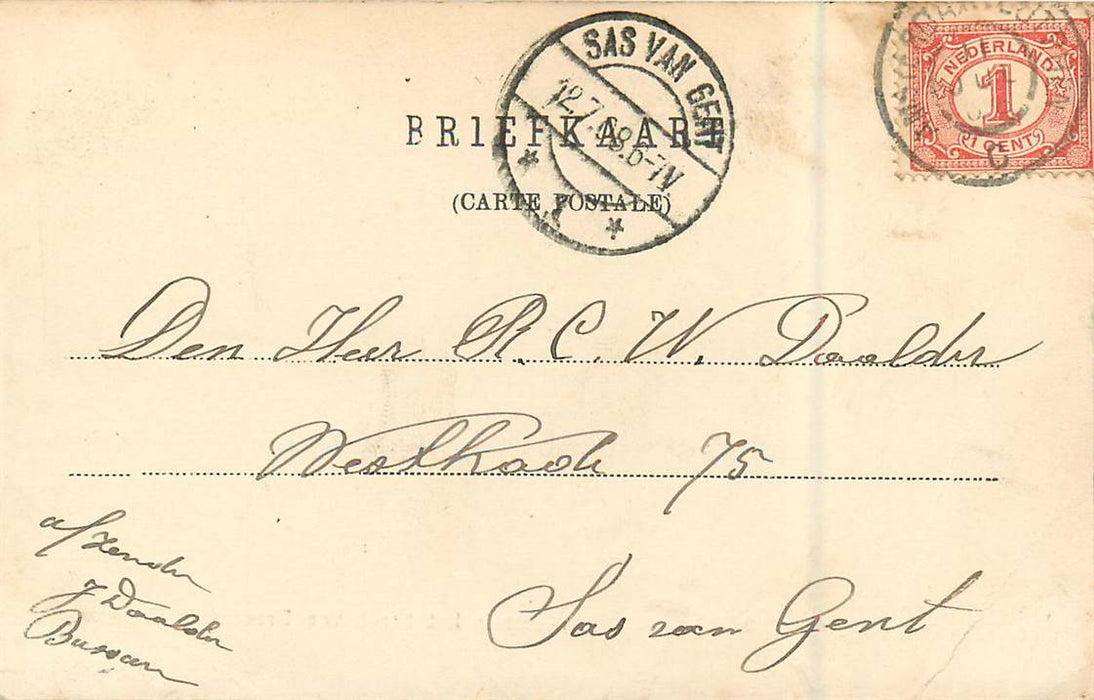 SAS VAN GENT
12.7.08.6-7N
NEDERLAND
1
1 CENT
BRIEFKAART
(CARTE POSTALE)
Den Heer R. C. W. Daalder
Westkade 75
Sas van Gent
afzender
J Daalder
Bussum